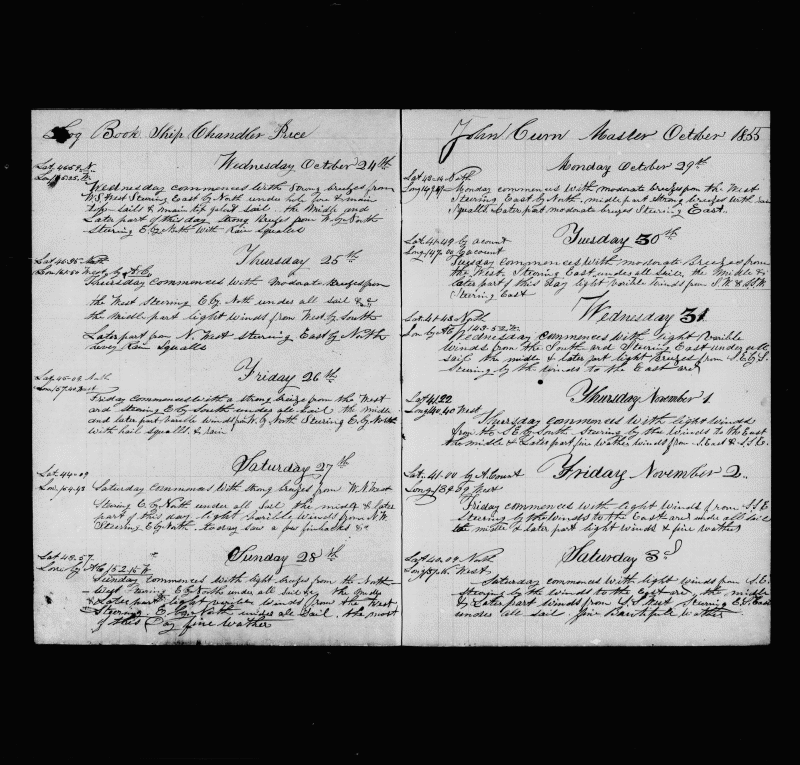 Log Book Ship Chandler Price
Wednesday October 24th
Wednesday commences with Strong breezes from
W.S. West Steering East by North under hole fore & main
top sails & main top galent sail. the Midle and
Later part of this day strong Breezes from W. by North
Steering E by North With Rain Squalls
Thursday 25th
Thursday commences with Moderate Breezes from
the West Steering E by North under all sail &c
the Midle part light winds from West by South
Later part from N. West steering East by North
Rain Squalls
Friday 26th
Friday commences with a strong breeze from the West
and steering E by South under all sail the midle
and later part varible winds from W. by North Steering E. by North
with hail squalls & rain
Lat. 44-09
Saturday 27th
Saturday commences with strong breezes from W.N. West
Stering E by North under all Sail. the midle & later
part of this day light varible winds from N.W.
Steering E by North. to day saw a few finbacks &c
Lat 43-57.
Sunday 28th
Lon by Ac 152.15 W
Sunday commences with light breezes from the North
West Steering E by North under all sail the Midle
& Later part light winds from the West
Steering E by North under all Sail. the most
of this Day fine wather
John Curn Master October 1855
Lat 43-14 North
Monday October 29th
Monday commences with moderate breezes from the West
Steering East by North. midle part strong breezes with rain
Squalls Later part moderate breezes Steering East.
Lat 41-49 by acount
Tuesday 30th
Long 147.00 by acount
Tuesday commences with moderate Breezes from
the West. Steering East under all sails. the Midle &
later part of this Day light varible Winds from S.W & S.S.W
Steering East
Lat. 41-43 North
Wednesday 31
Lon by Ac 143-52 W.
Wednesday commences with light Varible
winds from the South and Steering East under all
sail the midle & later part light Breezes from S.E by S.
Steering by the winds to the East ard
Lat 41.22
Thursday November 1
Long 140.40 West
Thursday commences with light winds
from the S.E by South. Steering by the winds to the East
the midle & Later part fine wather winds from S. East & S.S.E.
Lat. 41-00 by Acount
Friday November 2
Long 139 09 West
Friday commences with light winds from S.S.E
Steering by the winds to the East ard under all sail
the midle & later part light winds & fine wather
Lat 40.09 North
Saturday 3d
Long 137-16. West
Saturday commences with light winds from S.E.
steering by the winds to the East ard the midle
& Later part winds from S.S West Steering E.S. East
under all sail fine Bautifull Wather